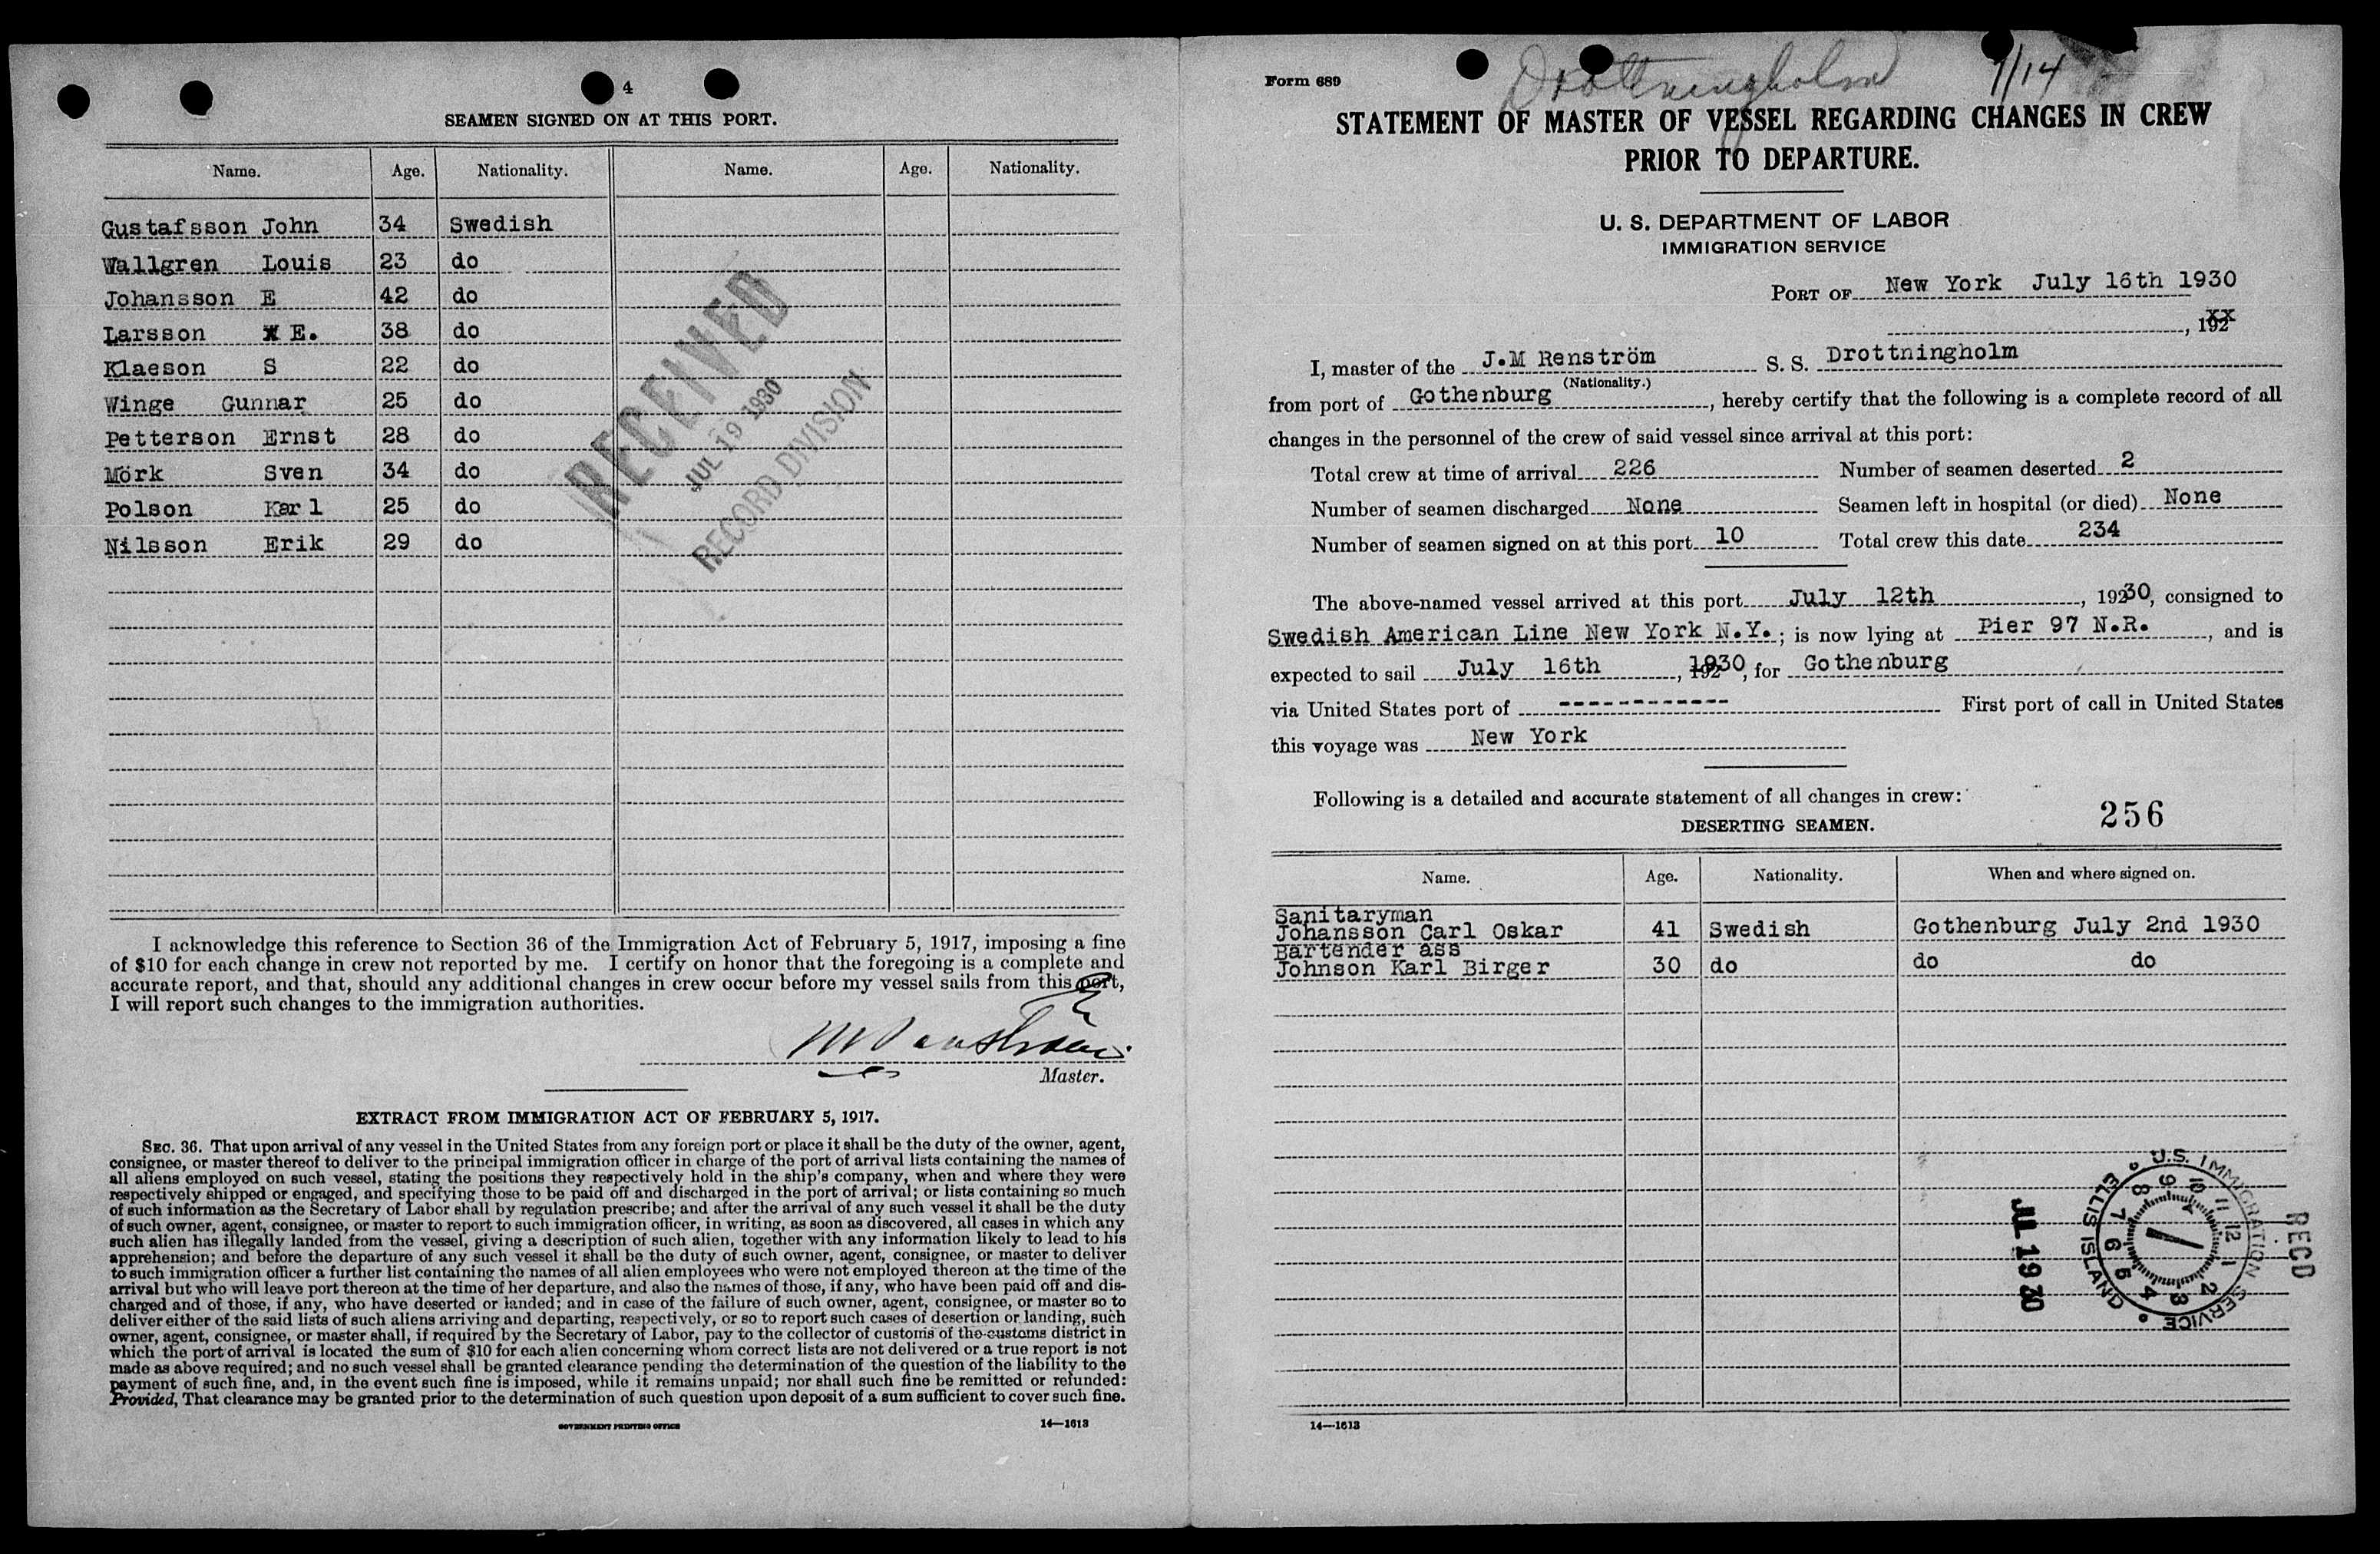 4
SEAMEN SIGNED ON AT THIS PORT.
Name. Age. Nationality. Name. Age. Nationality.
Gustafsson John 34 Swedish
Wallgren Louis 23 do
Johansson E 42 do
Larsson E. 38 do
Klaeson S 22 do
Winge Gunnar 25 do
Petterson Ernst 28 do
Mörk Sven 34 do
Polson Karl 25 do
Nilsson Erik 29 do
RECEIVED
JUL 19 1930
RECORD DIVISION
I acknowledge this reference to Section 36 of the Immigration Act of February 5, 1917, imposing a fine
of $10 for each change in crew not reported by me. I certify on honor that the foregoing is a complete and
accurate report, and that, should any additional changes in crew occur before my vessel sails from this port,
I will report such changes to the immigration authorities.
Master.
EXTRACT FROM IMMIGRATION ACT OF FEBRUARY 5, 1917.
SEC. 36. That upon arrival of any vessel in the United States from any foreign port or place it shall be the duty of the owner, agent,
consignee, or master thereof to deliver to the principal immigration officer in charge of the port of arrival lists containing the names of
all aliens employed on such vessel, stating the positions they respectively hold in the ship's company, when and where they were
respectively shipped or engaged, and specifying those to be paid off and discharged in the port of arrival; or lists containing so much
of such information as the Secretary of Labor shall by regulation prescribe; and after the arrival of any such vessel it shall be the duty
of such owner, agent, consignee, or master to report to such immigration officer, in writing, as soon as discovered, all cases in which any
such alien has illegally landed from the vessel, giving a description of such alien, together with any information likely to lead to his
apprehension; and before the departure of any such vessel it shall be the duty of such owner, agent, consignee, or master to deliver
to such immigration officer a further list containing the names of all alien employees who were not employed thereon at the time of the
arrival but who will leave port thereon at the time of her departure, and also the names of those, if any, who have been paid off and dis-
charged and of those, if any, who have deserted or landed; and in case of the failure of such owner, agent, consignee, or master so to
deliver either of the said lists of such aliens arriving and departing, respectively, or so to report such cases of desertion or landing, such
owner, agent, consignee, or master shall, if required by the Secretary of Labor, pay to the collector of customs of the customs district in
which the port of arrival is located the sum of $10 for each alien concerning whom correct lists are not delivered or a true report is not
made as above required; and no such vessel shall be granted clearance pending the determination of the question of the liability to the
payment of such fine, and, in the event such fine is imposed, while it remains unpaid; nor shall such fine be remitted or refunded:
Provided, That clearance may be granted prior to the determination of such question upon deposit of a sum sufficient to cover such fine.
GOVERNMENT PRINTING OFFICE 14—1613
Form 689
Drottningholm 7/14
STATEMENT OF MASTER OF VESSEL REGARDING CHANGES IN CREW
PRIOR TO DEPARTURE.
U. S. DEPARTMENT OF LABOR
IMMIGRATION SERVICE
PORT OF New York July 16th 1930
, 192xx
I, master of the J.M Renström S. S. Drottningholm
(Nationality.)
from port of Gothenburg, hereby certify that the following is a complete record of all
changes in the personnel of the crew of said vessel since arrival at this port:
Total crew at time of arrival 226 Number of seamen deserted 2
Number of seamen discharged None Seamen left in hospital (or died) None
Number of seamen signed on at this port 10 Total crew this date 234
The above-named vessel arrived at this port July 12th, 19230, consigned to
Swedish American Line New York N.Y.; is now lying at Pier 97 N.R., and is
expected to sail July 16th, 1930, for Gothenburg
via United States port of ------------ First port of call in United States
this voyage was New York
Following is a detailed and accurate statement of all changes in crew:
256
DESERTING SEAMEN.
Name. Age. Nationality. When and where signed on.
Sanitaryman
Johansson Carl Oskar 41 Swedish Gothenburg July 2nd 1930
Bartender ass
Johnson Karl Birger 30 do do do
U.S. IMMIGRATION SERVICE
ELLIS ISLAND
1 2 3 4 5 6 7 8 9 10 11 12
RECD
14—1613